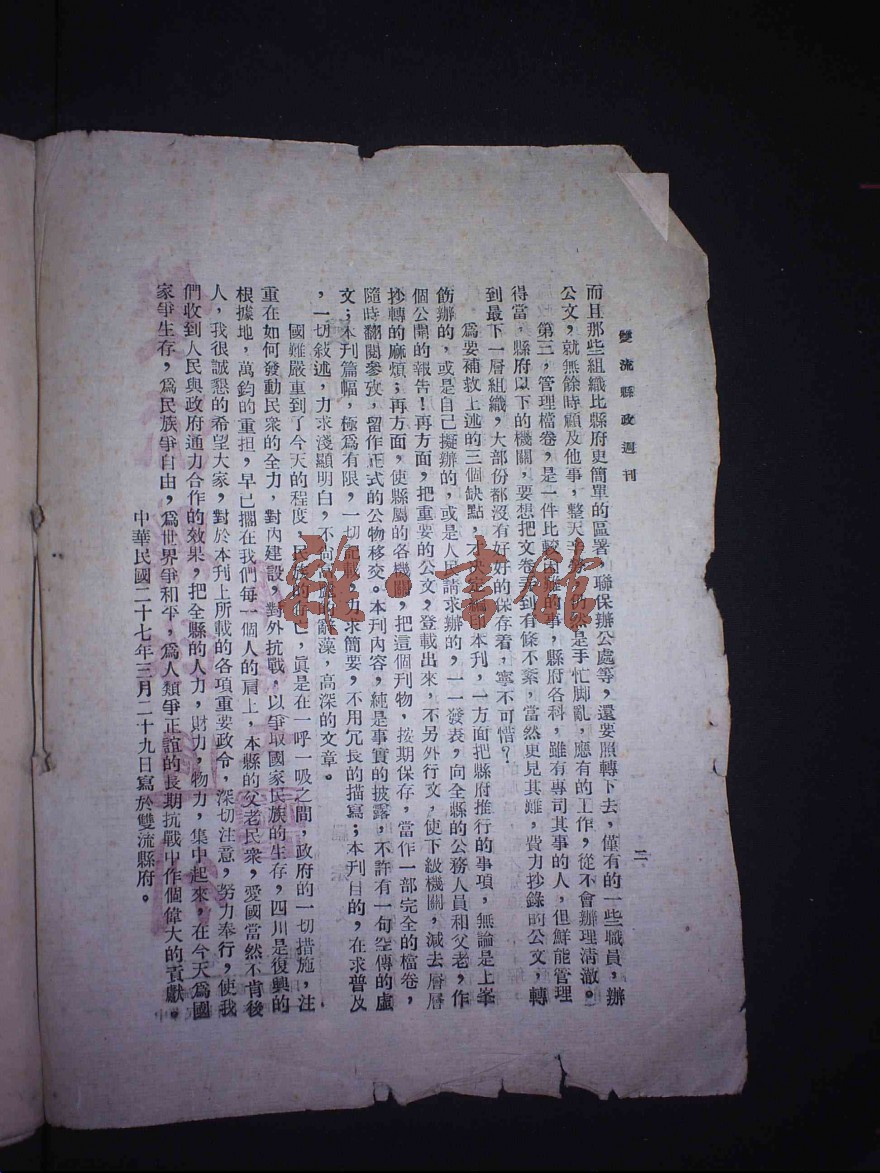 雙流縣政週刊
二
而且那些組織比縣府更簡單的區署，聯保辦公處等，還要照轉下去，僅有的一些職員，辦
公文，就無餘時顧及他事，整天 仍然是手忙脚亂，應有的工作，從不會辦理清澈。
第三，管理檔卷，是一件比較困難的事，縣府各科，雖有專司其事的人，但鮮能管理
得當，縣府以下的機關，要想把文卷弄到有條不紊，當然更見其難，費力抄錄的公文，轉
到最下一層組織，大部份都沒有好好的保存着，寧不可惜？
爲要補救上述的三個缺點，才決定編印本刊，一方面把縣府推行的事項，無論是上峯
飭辦的，或是自己擬辦的，或是人民請求辦的，一一發表，向全縣的公務人員和父老，作
個公開的報告！再方面，把重要的公文，登載出來，不另外行文，使下級機關，減去層層
抄轉的麻煩；再方面，使縣屬的各機關，把這個刊物，按期保存，當作一部完全的檔卷，
隨時翻閱參攷，留作正式的公物移交。本刊內容，純是事實的披露，不許有一句空傳的虛
文；本刊篇幅，極爲有限，一切記載，力求簡要，不用冗長的描寫；本刊目的，在求普及
，一切敍述，力求淺顯明白，不尚 的辭藻，高深的文章。
國難嚴重到了今天的程度，民族的存亡，眞是在一呼一吸之間，政府的一切措施，注
重在如何發動民衆的全力，對內建設，對外抗戰，以爭取國家民族的生存，四川是復興的
根據地，萬鈞的重担，早已擱在我們每一個人的肩上，本縣的父老民衆，愛國當然不肯後
人，我很誠懇的希望大家，對於本刊上所載的各項重要政令，深切注意，努力奉行，使我
們收到人民與政府通力合作的效果，把全縣的人力，財力，物力，集中起來，在今天爲國
家爭生存，爲民族爭自由，爲世界爭和平，爲人類爭正誼的長期抗戰中作個偉大的貢獻。
中華民國二十七年三月二十九日寫於雙流縣府。
雜·書館